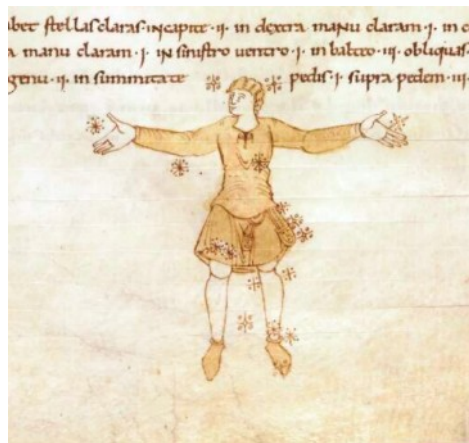 bet stellas claras·in capite·ii·in dextra manu claram·i·in c
a manu claram·i·in sinistro uentro·i·in balteo·iii·obliquas·
genu·ii·in summitate pedis·i·supra pedem·iii·